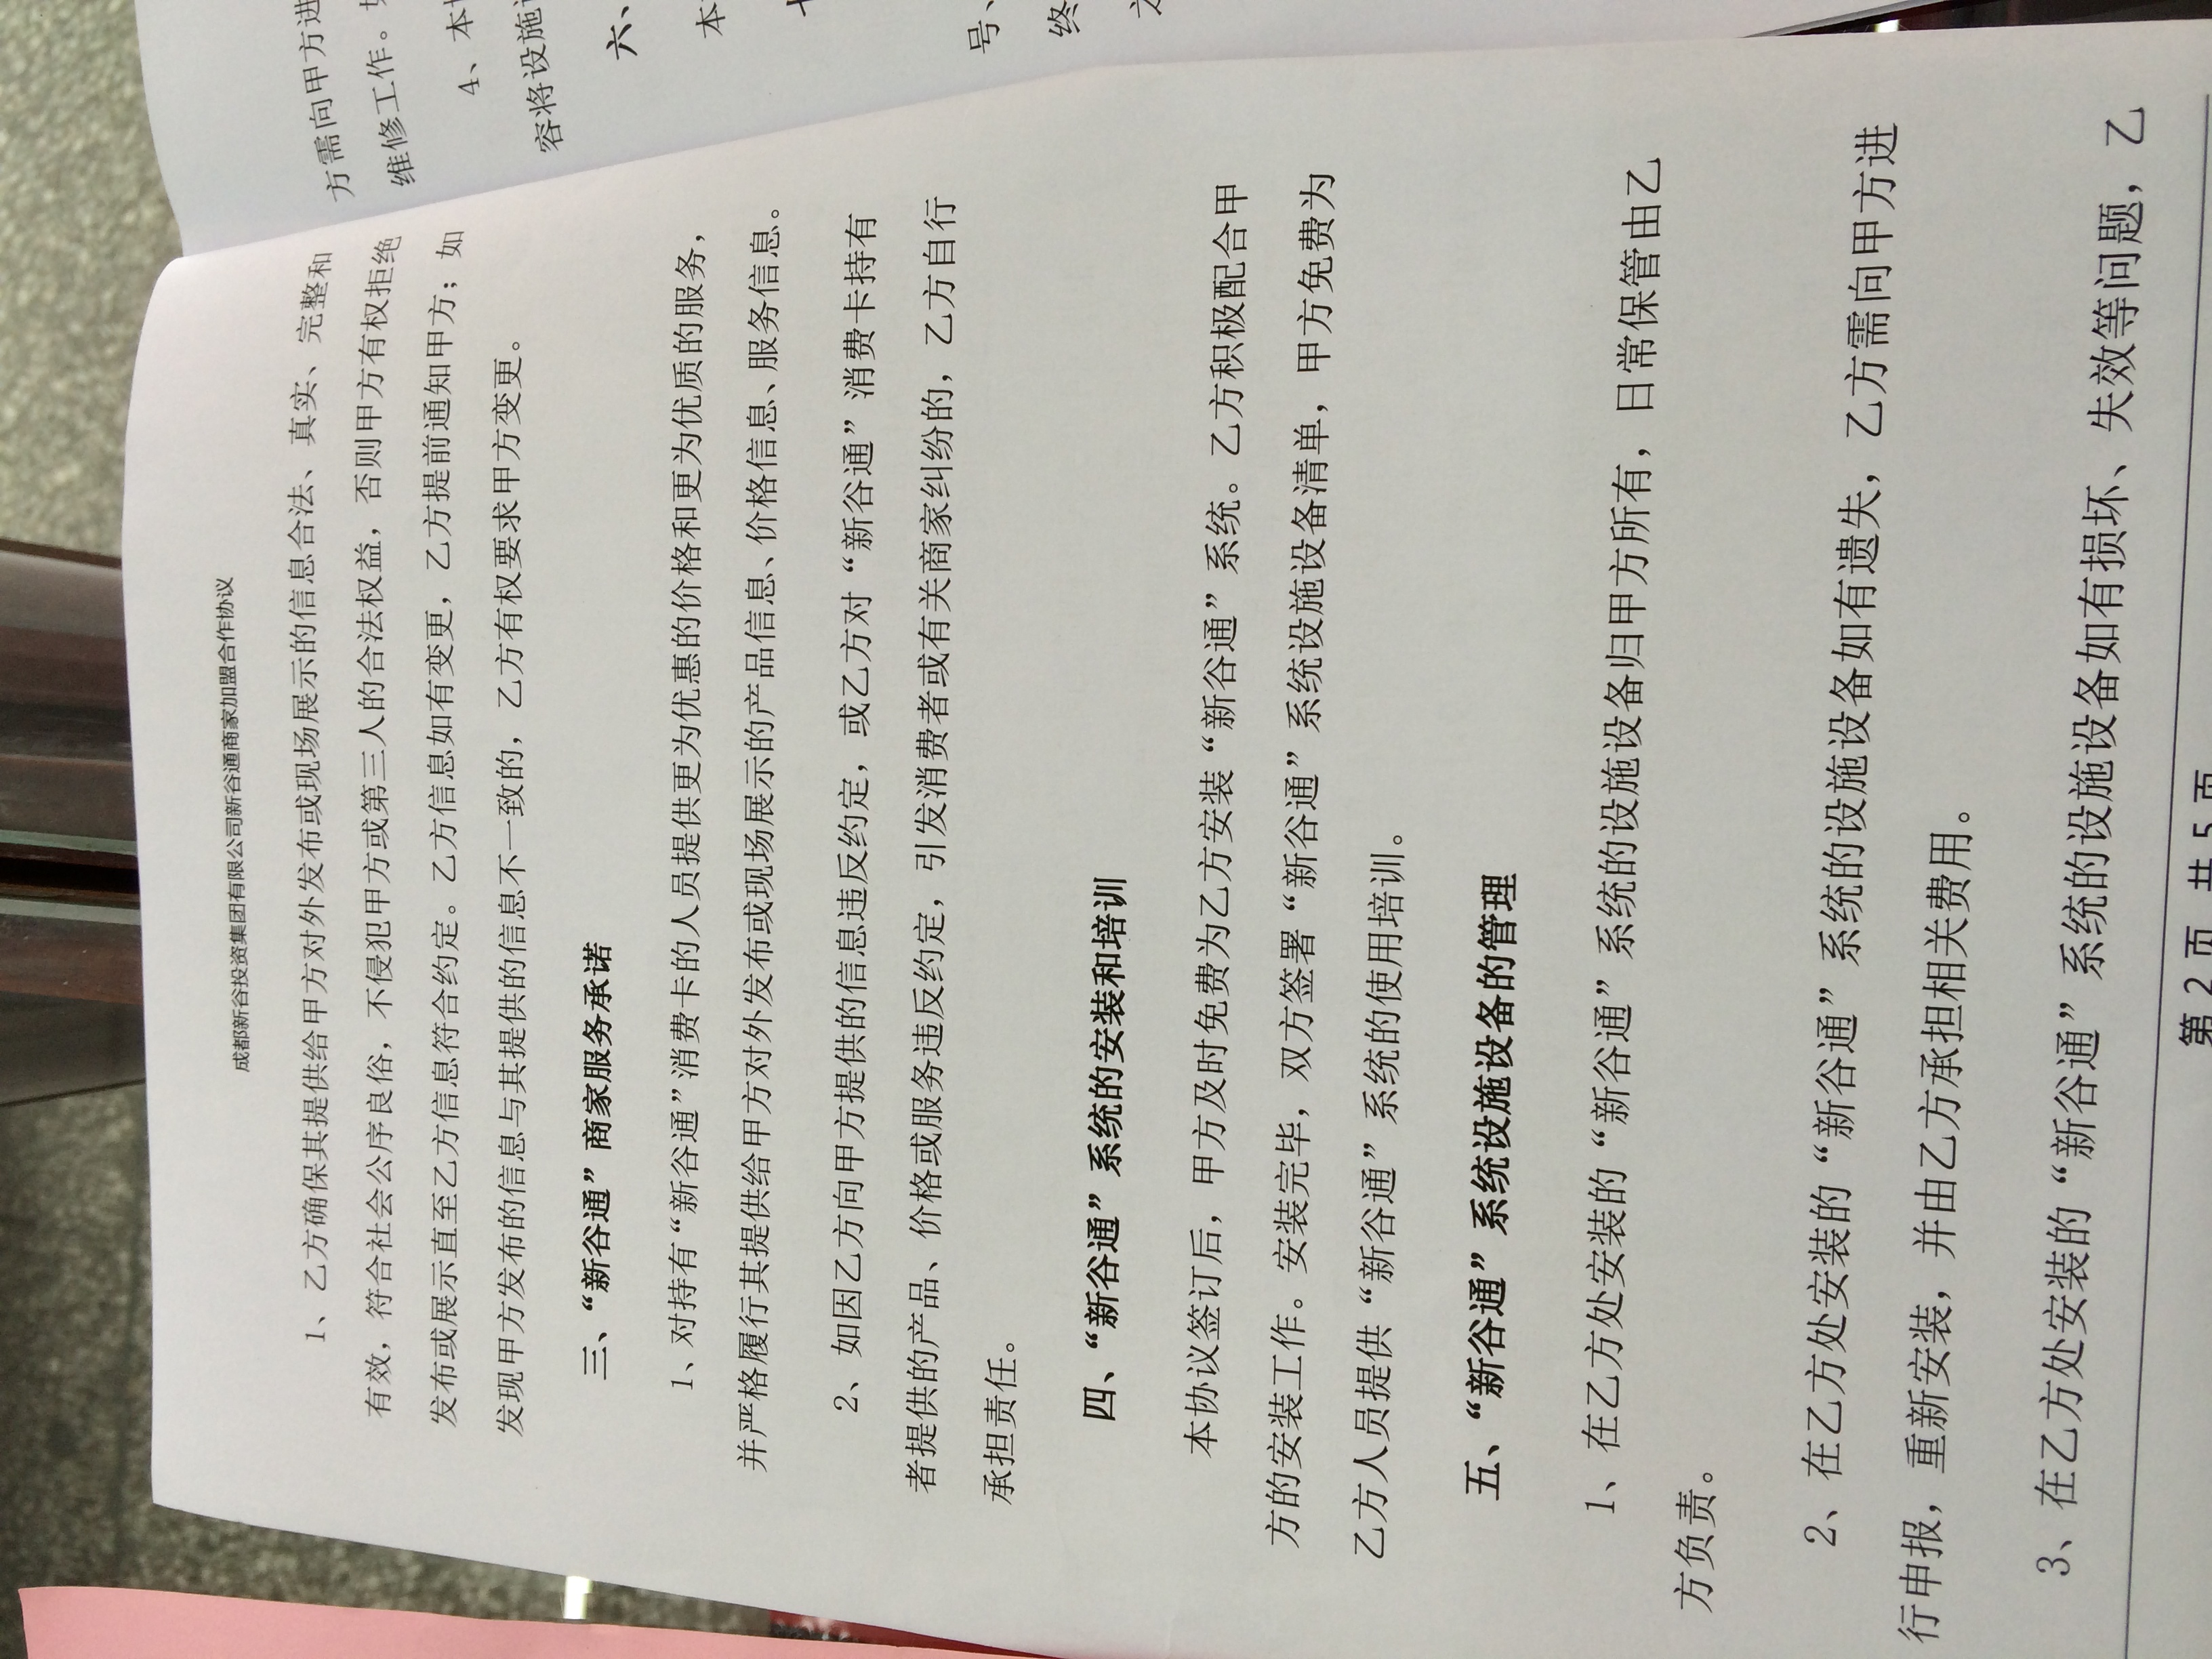 成都新谷投资集团有限公司新谷通商家加盟合作协议
1、乙方确保其提供给甲方对外发布或现场展示的信息合法、真实、完整和
有效，符合社会公序良俗，不侵犯甲方或第三人的合法权益，否则甲方有权拒绝
发布或展示直至乙方信息符合约定。乙方信息如有变更，乙方提前通知甲方；如
发现甲方发布的信息与其提供的信息不一致的，乙方有权要求甲方变更。
三、“新谷通”商家服务承诺
1、对持有“新谷通”消费卡的人员提供更为优惠的价格和更为优质的服务，
并严格履行其提供给甲方对外发布或现场展示的产品信息、价格信息、服务信息。
2、如因乙方向甲方提供的信息违反约定，或乙方对“新谷通”消费卡持有
者提供的产品、价格或服务违反约定，引发消费者或有关商家纠纷的，乙方自行
承担责任。
四、“新谷通”系统的安装和培训
本协议签订后，甲方及时免费为乙方安装“新谷通”系统。乙方积极配合甲
方的安装工作。安装完毕，双方签署“新谷通”系统设施设备清单，甲方免费为
乙方人员提供“新谷通”系统的使用培训。
五、“新谷通”系统设施设备的管理
1、在乙方处安装的“新谷通”系统的设施设备归甲方所有，日常保管由乙
方负责。
2、在乙方处安装的“新谷通”系统的设施设备如有遗失，乙方需向甲方进
行申报，重新安装，并由乙方承担相关费用。
3、在乙方处安装的“新谷通”系统的设施设备如有损坏、失效等问题，乙
第 2 页 共 5 页
方需向甲方进
维修工作。
4、本
容将设施
六、
本
号、
终